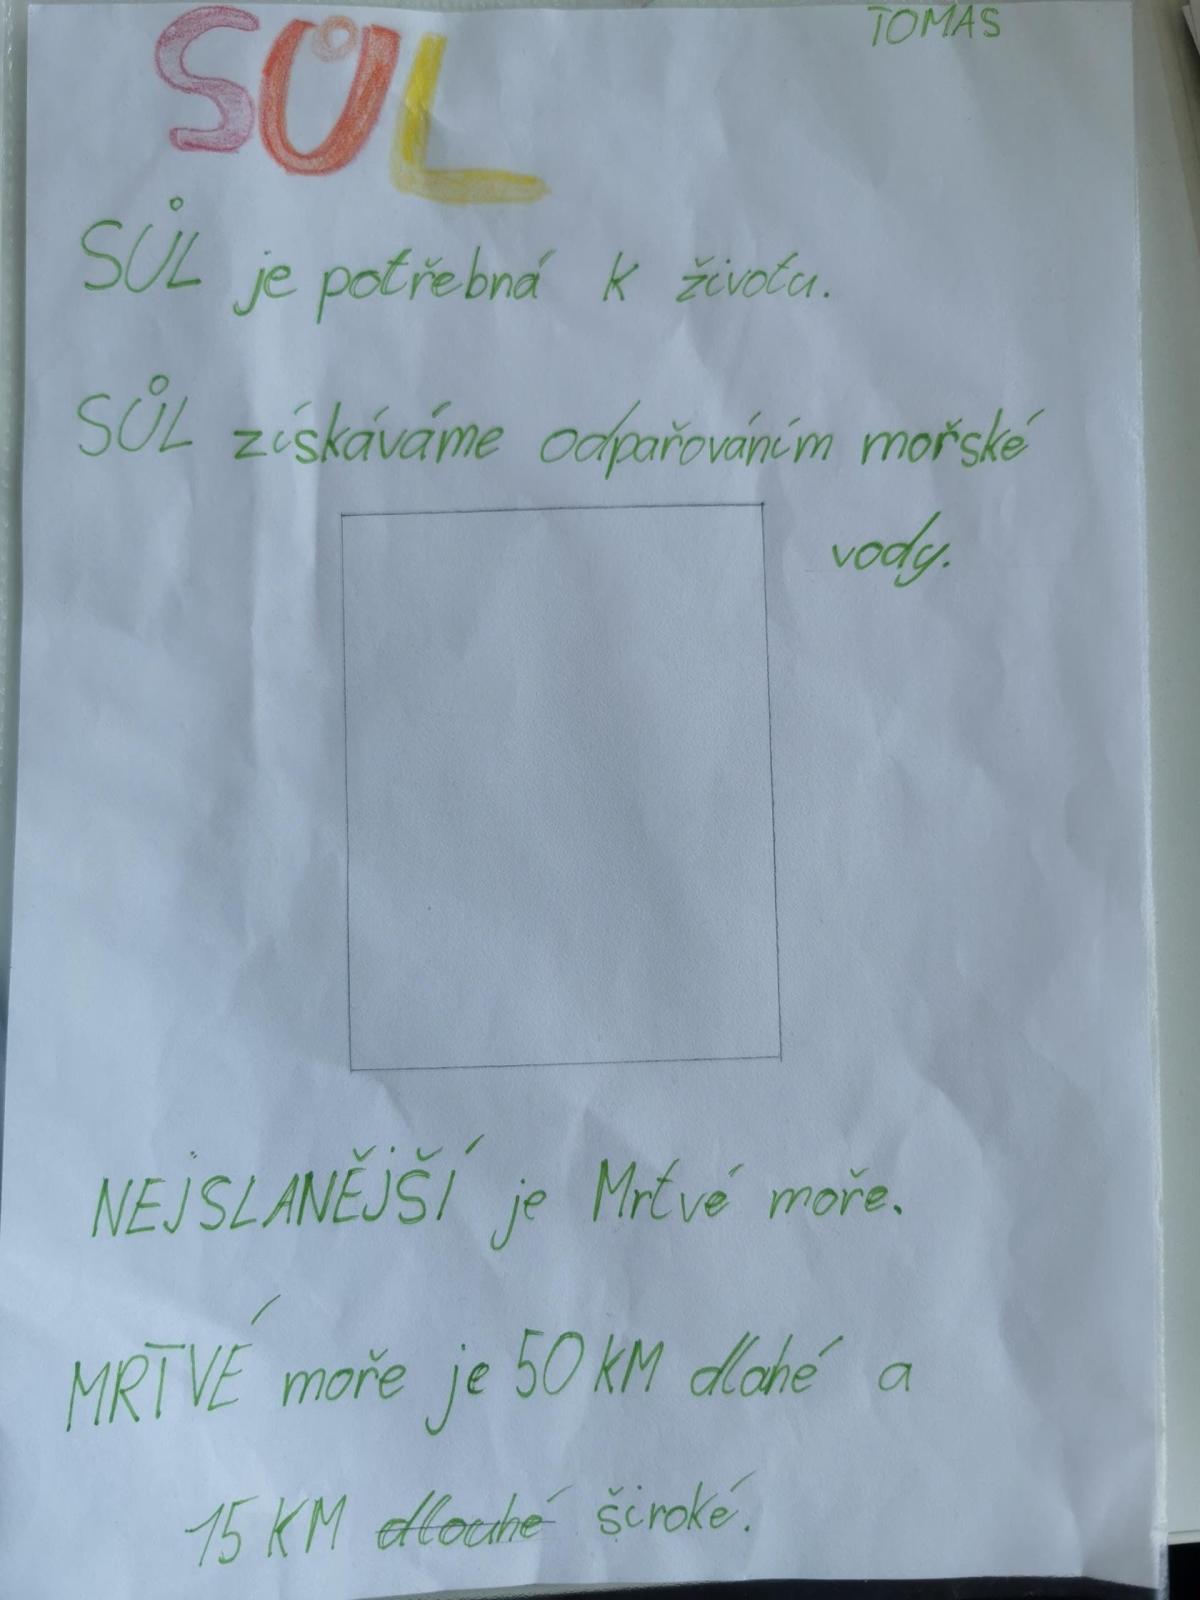 SŮL
TOMAS
SŮL je potřebná k životu.
SŮL získáváme odpařováním mořské
vody.
NEJSLANĚJŠÍ je Mrtvé moře.
MRTVÉ moře je 50 KM dlahé a
15 KM dlouhé široké.